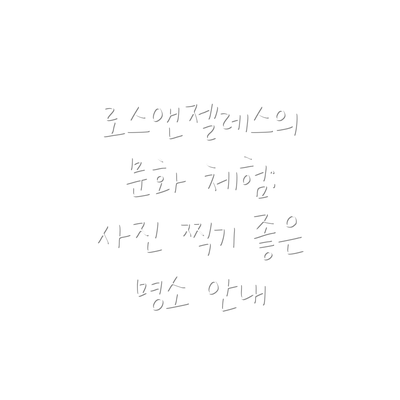 로스앤젤레스의
문화 체험:
사진 찍기 좋은
명소 안내